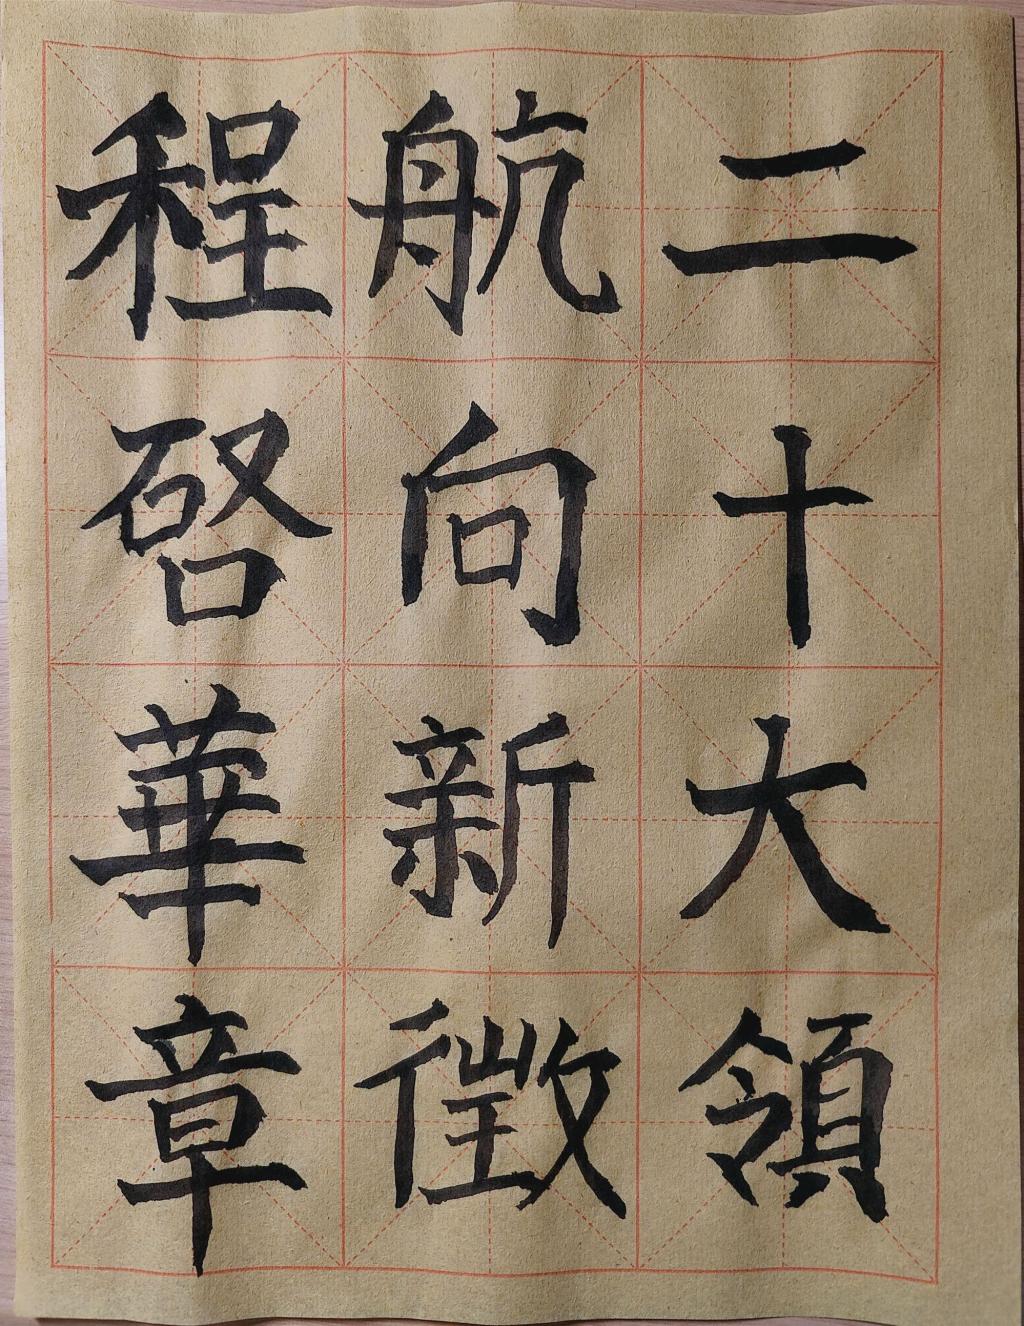 二十大領
航向新徵
程啓華章